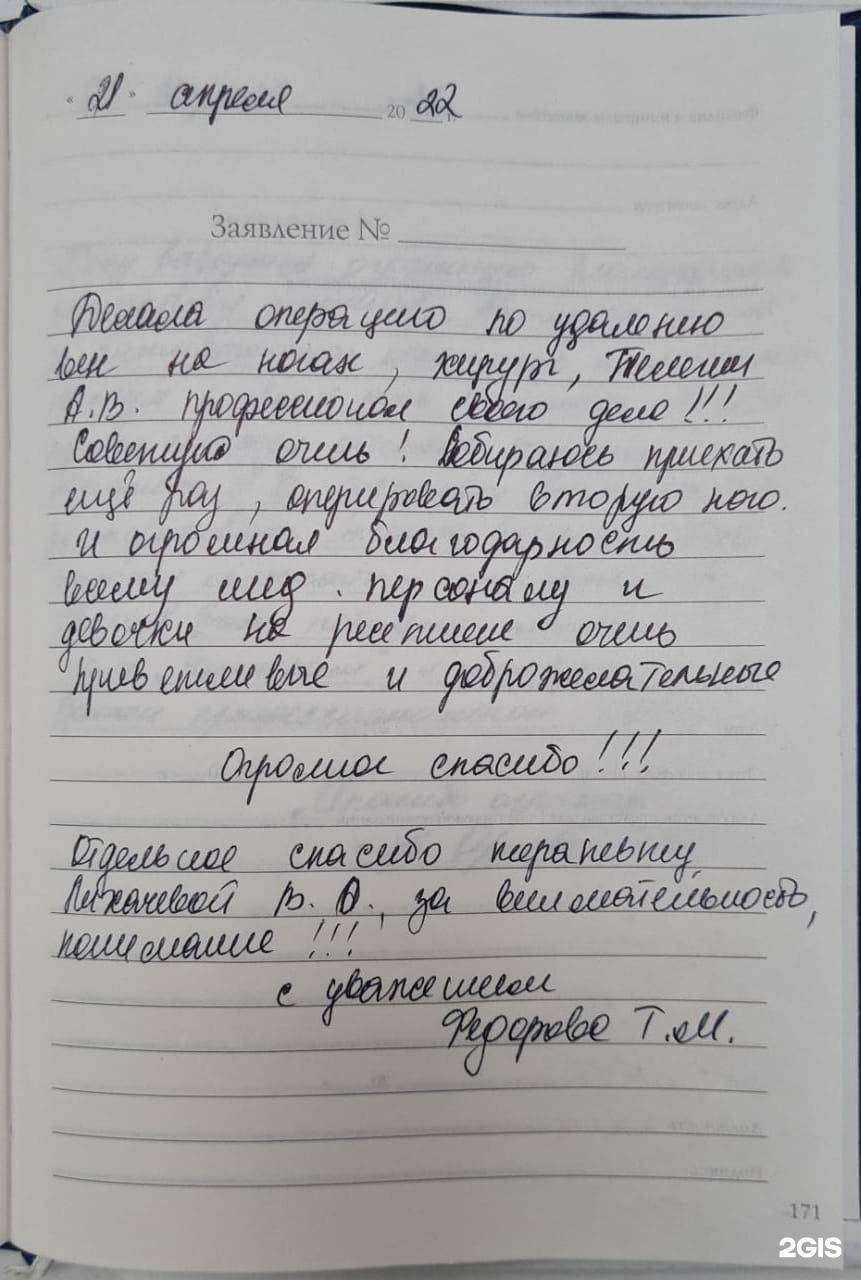 « 21 » апреля 2022 г.
Заявление №
Делала операцию по удалению
вен на ногах, хирург,
А.В. профессионал своего дела!!!
Советую очень! Собираюсь приехать
ещё раз, оперировать вторую ногу.
И огромная благодарность
всему мед. персоналу и
девочки на ресепшене очень
приветливые и доброжелательные
Огромное спасибо!!!
Отдельное спасибо терапевту
Лихачевой В. О., за внимательность,
понимание!!!
с уважением
Федорова Т.М.
171
2GIS